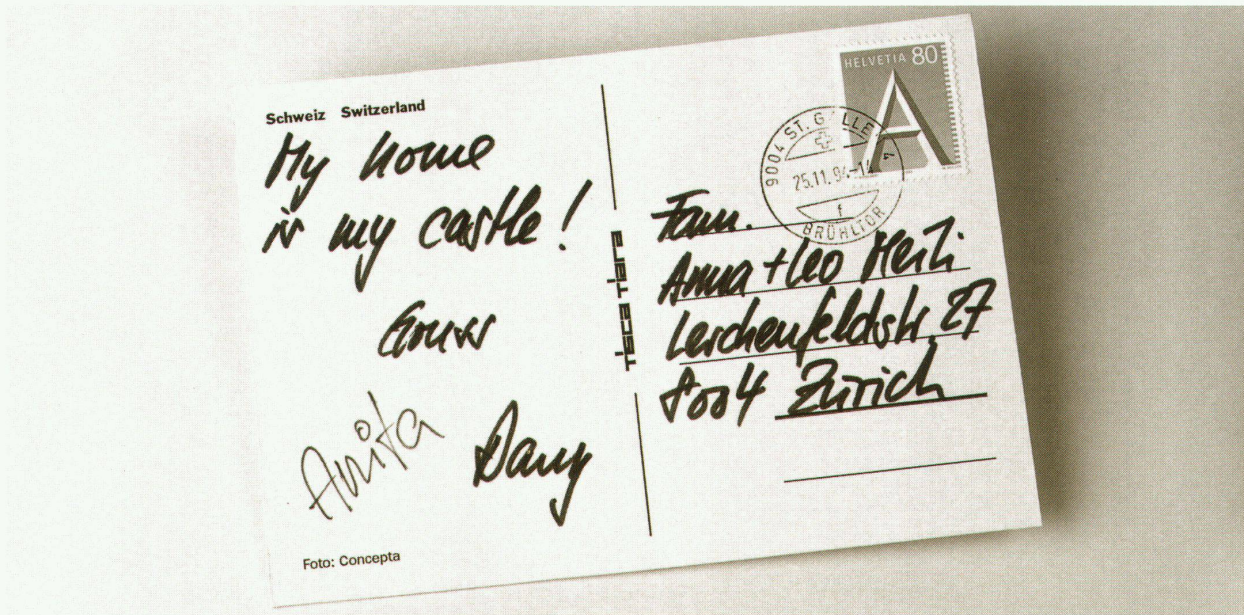 Schweiz Switzerland
My home
is my castle!
Gruss
Anita
Dany
Foto: Concepta
tisca tiara
HELVETIA 80
A
9004 ST. GALLEN 4
25.11.94-14
f
BRÜHLTOR
Fam.
Anna + Leo Merli
Lerchenfeldstr. 27
8004 Zürich